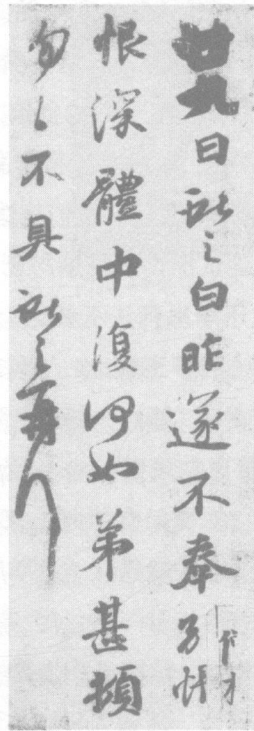 廿九日獻之白昨遂不奉別悵
恨深體中復何如弟甚頓
匆匆不具獻之再拜